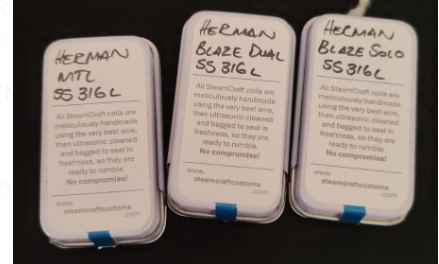 HERMAN
MTL
SS 316L
All SteamCraft coils are
meticulously handmade
using the very best wire,
then ultrasonic cleaned
and bagged to seal in
freshness, so they are
ready to rumble.
No compromise!
www.
steamcraftcustoms
.com
HERMAN
BLAZE DUAL
SS 316L
All SteamCraft coils are
meticulously handmade
using the very best wire,
then ultrasonic cleaned
and bagged to seal in
freshness, so they are
ready to rumble.
No compromise!
www.
steamcraftcustoms
.com
HERMAN
BLAZE SOLO
SS 316L
All SteamCraft coils are
meticulously handmade
using the very best wire,
then ultrasonic cleaned
and bagged to seal in
freshness, so they are
ready to rumble.
No compromise!
www.
steamcraftcustoms
.com